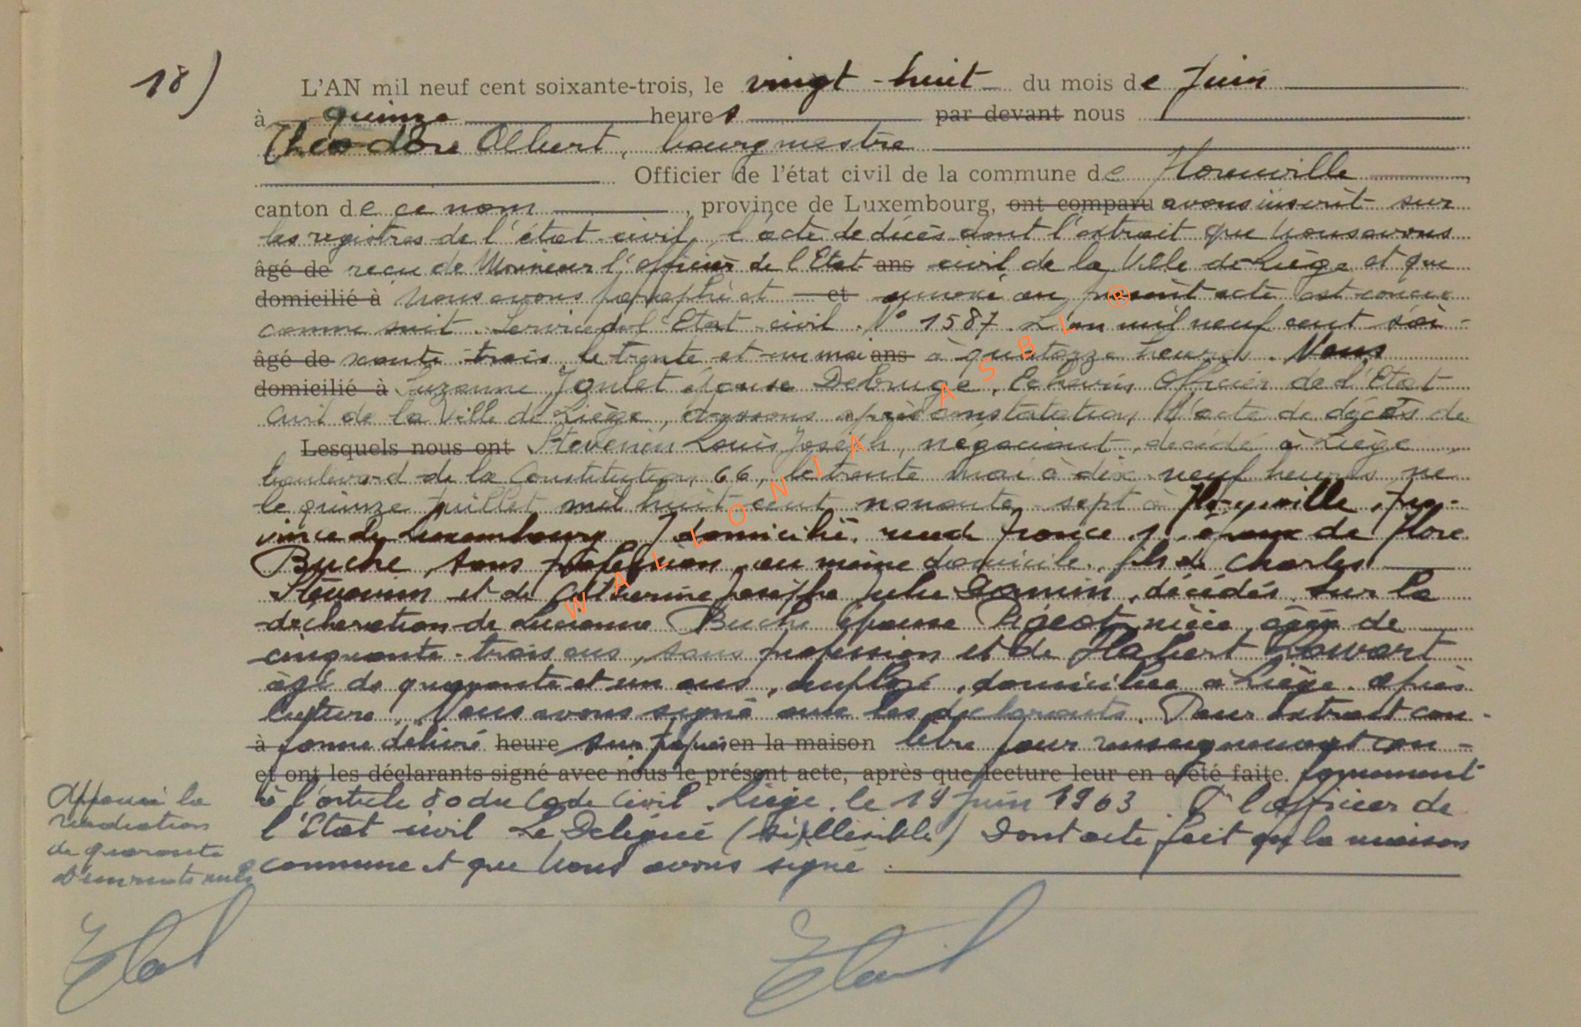 18)
L'AN mil neuf cent soixante-trois, le vingt-huit du mois de Juin
à quinze heures par devant nous
Théodore Albert, bourgmestre
Officier de l'état civil de la commune de
canton de ce nom, province de Luxembourg, ont comparu avons inscrit sur
les registres de l'état civil, l'acte de décès dont l'extrait que nous avons
âgé de recu de Monsieur l'officier de l'Etat ans civil de la Ville de Liège et que
domicilié à nous avons paraphé et et annexé au présent acte est concu
comme suit. Service de l'Etat civil. N° 1587. L'an mil neuf cent soi-
âgé de xante trois, le trente et un mai ans à quatorze heures. Nous
domicilié à Suzanne épouse Debruge, Echevin Officier de l'Etat
Civil de la Ville de Liège, dressons après constatation, l'acte de décès de
Lesquels nous ont Stévenin Louis Joseph, négociant, décédé à Liège,
boulevard de la Constitution, 66, le trente mai à dix neuf heures né
le quinze juillet mil huit cent nonante sept à pro-
vince de Luxembourg, domicilié, époux de Flore
Buche, sans profession, au même domicile, fils de Charles
Stévenin et de Catherine Josèphe Julie, décédés. Sur la
déclaration de Buche épouse Pigeot, nièce, âgée de
cinquante-trois ans, sans profession et de
âgé de quarante et un ans, employé, domiciliés à Liège. Après
lecture, Nous avons signé avec les déclarants. Pour extrait con-
à forme délivré heure sur papier en la maison libre pour renseignement con-
et ont les déclarants signé avec nous le présent acte, après que lecture leur en a été faite. formément
à l'article 80 du Code Civil. Liège, le 14 Juin 1963. P l'officier de
l'Etat civil Le Délégué (s) illisible) Dont acte fait en la maison
commune et que Nous avons signé.
Approuvé la
radiation
de quarante
mots nuls
WALLONIA ASBL ®